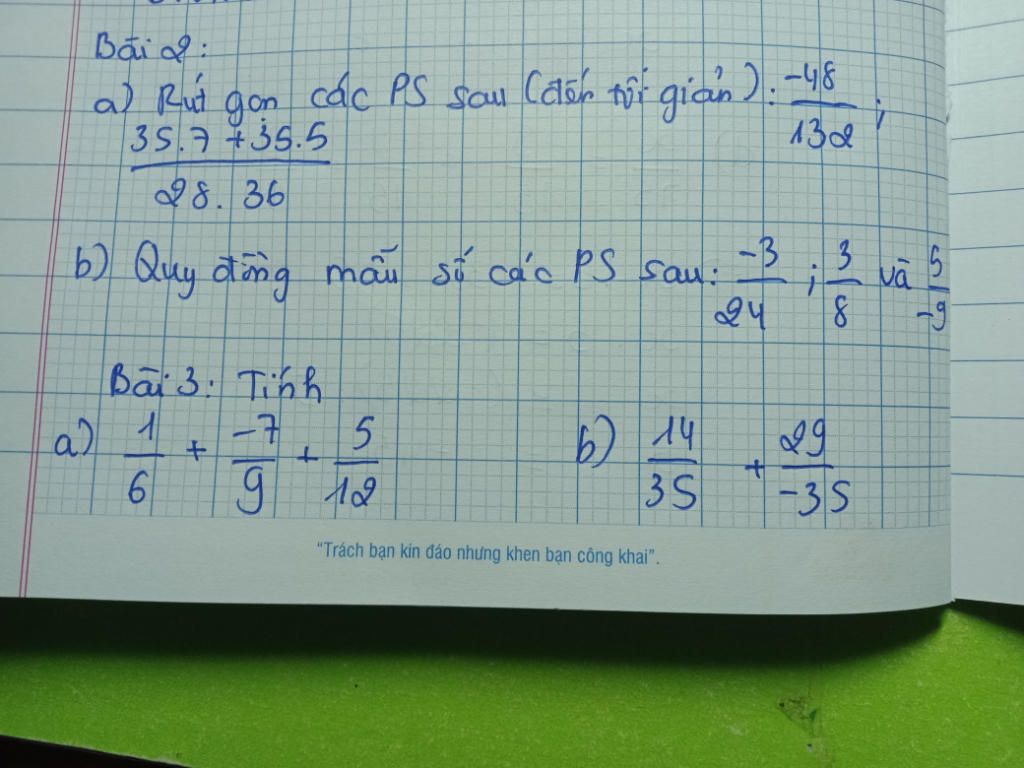 Bài 2:
a) Rút gọn các PS sau (đến tối giản): -48/132;
35.7 + 35.5 / 28.36
b) Quy đồng mẫu số các PS sau: -3/24; 3/8 và 5/-9
Bài 3: Tính
a) 1/6 + -7/9 + 5/12 b) 14/35 + 29/-35
"Trách bạn kín đáo nhưng khen bạn công khai".